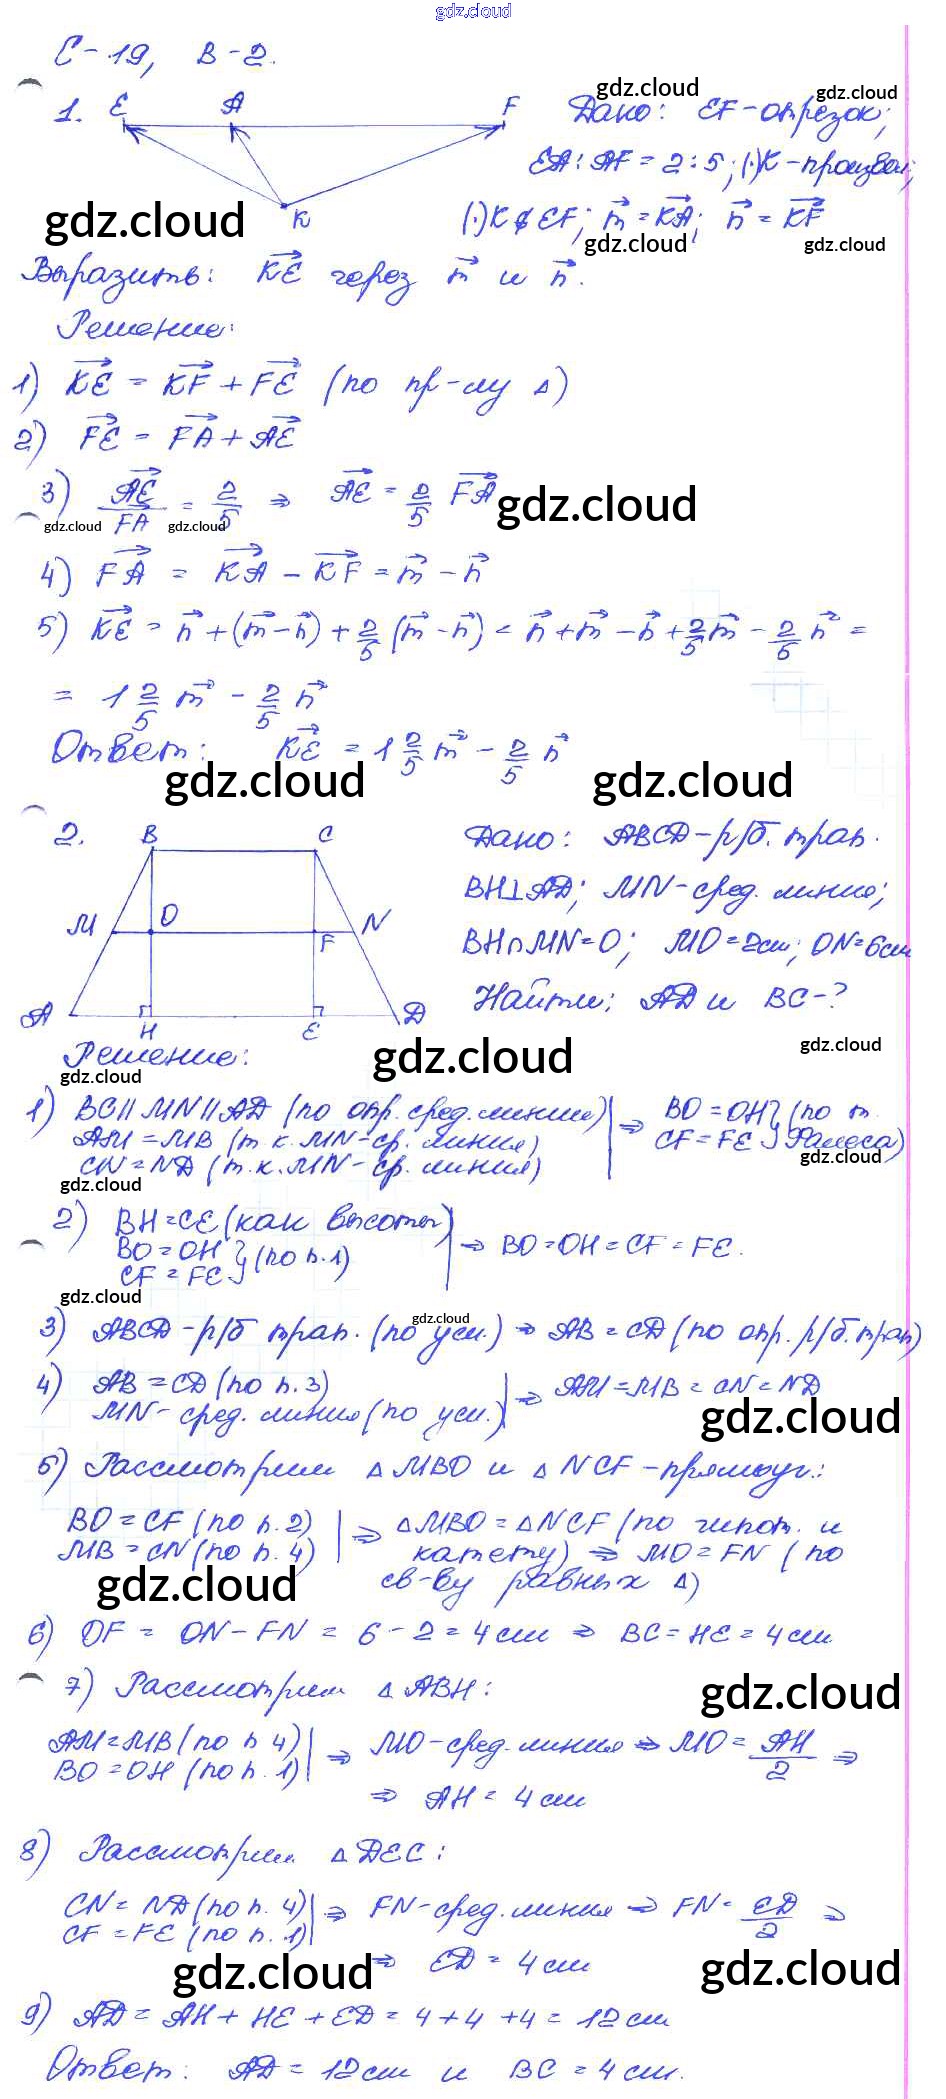 gdz.cloud
С-19, В-2.
1. E A F K
Дано: EF-отрезок;
EA:AF=2:5; (·)K-произвол;
(·)K∉EF; m⃗=KA⃗; n⃗=KF⃗
gdz.cloud gdz.cloud
gdz.cloud gdz.cloud gdz.cloud
Выразить: KE⃗ через m⃗ и n⃗.
Решение:
1) KE⃗ = KF⃗ + FE⃗ (по пр-лу Δ)
2) FE⃗ = FA⃗ + AE⃗
3) AE⃗/FA = 2/5 ⇒ AE⃗ = 2/5 FA⃗
gdz.cloud gdz.cloud gdz.cloud
4) FA⃗ = KA⃗ - KF⃗ = m⃗ - n⃗
5) KE⃗ = n⃗ + (m⃗ - n⃗) + 2/5 (m⃗ - n⃗) = n⃗ + m⃗ - n⃗ + 2/5 m⃗ - 2/5 n⃗ =
= 1 2/5 m⃗ - 2/5 n⃗
Ответ: KE⃗ = 1 2/5 m⃗ - 2/5 n⃗
gdz.cloud gdz.cloud
2. B C M O F N A H E D
Дано: ABCD-р/б. трап.
BH⊥AD; MN-сред. линия;
BH∩MN=O; MO=2см; ON=6см
Найти: AD и BC-?
Решение:
gdz.cloud gdz.cloud
gdz.cloud
1) BC∥MN∥AD (по опр. сред. линии) ⇒ BO=OH} (по т.
AM=MB (т.к. MN-ср. линия) CF=FE} Фалеса)
CN=ND (т.к. MN-ср. линия)
gdz.cloud
gdz.cloud
2) BH=CE (как высоты)
BO=OH} (по п.1) ⇒ BO=OH=CF=FE.
CF=FE}
gdz.cloud
gdz.cloud
3) ABCD-р/б трап. (по усл.) ⇒ AB=CD (по опр. р/б. трап)
4) AB=CD (по п.3) ⇒ AM=MB=CN=ND
MN-сред. линия (по усл.)
gdz.cloud
5) Рассмотрим ΔMBO и ΔNCF-прямоуг.:
BO=CF (по п.2) ⇒ ΔMBO=ΔNCF (по гипот. и
MB=CN (по п.4) катету) ⇒ MO=FN (по
св-ву равных Δ)
gdz.cloud
6) OF = ON-FN = 6-2=4см ⇒ BC=HE=4см
7) Рассмотрим ΔABH:
gdz.cloud
AM=MB (по п 4) ⇒ MO-сред. линия ⇒ MO = AH/2 ⇒
BO=OH (по п.1)
⇒ AH=4см
8) Рассмотрим ΔDEC:
CN=ND (по п.4) ⇒ FN-сред. линия ⇒ FN= ED/2 ⇒
CF=FE (по п.1)
⇒ ED=4см
gdz.cloud gdz.cloud
9) AD=AH+HE+ED=4+4+4=12см
Ответ: AD=12см и BC=4см.